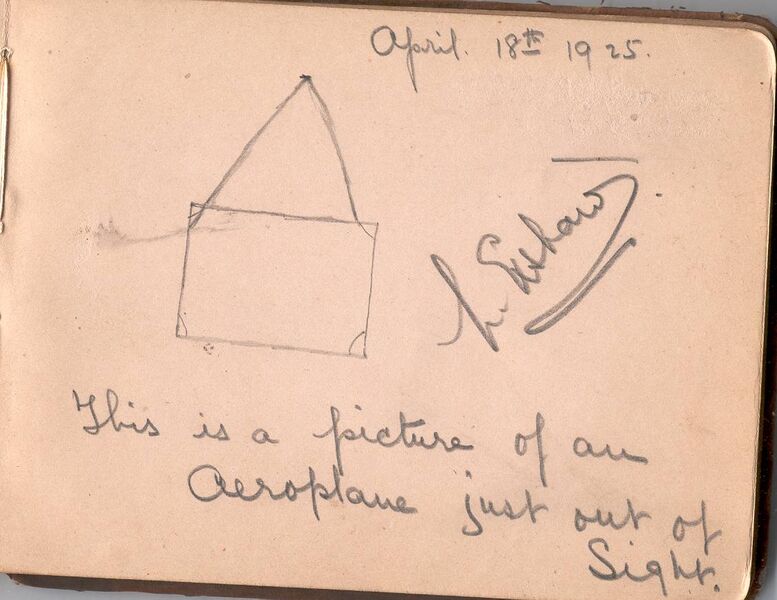 April. 18th 1925.
This is a picture of an
Aeroplane just out of
Sight.